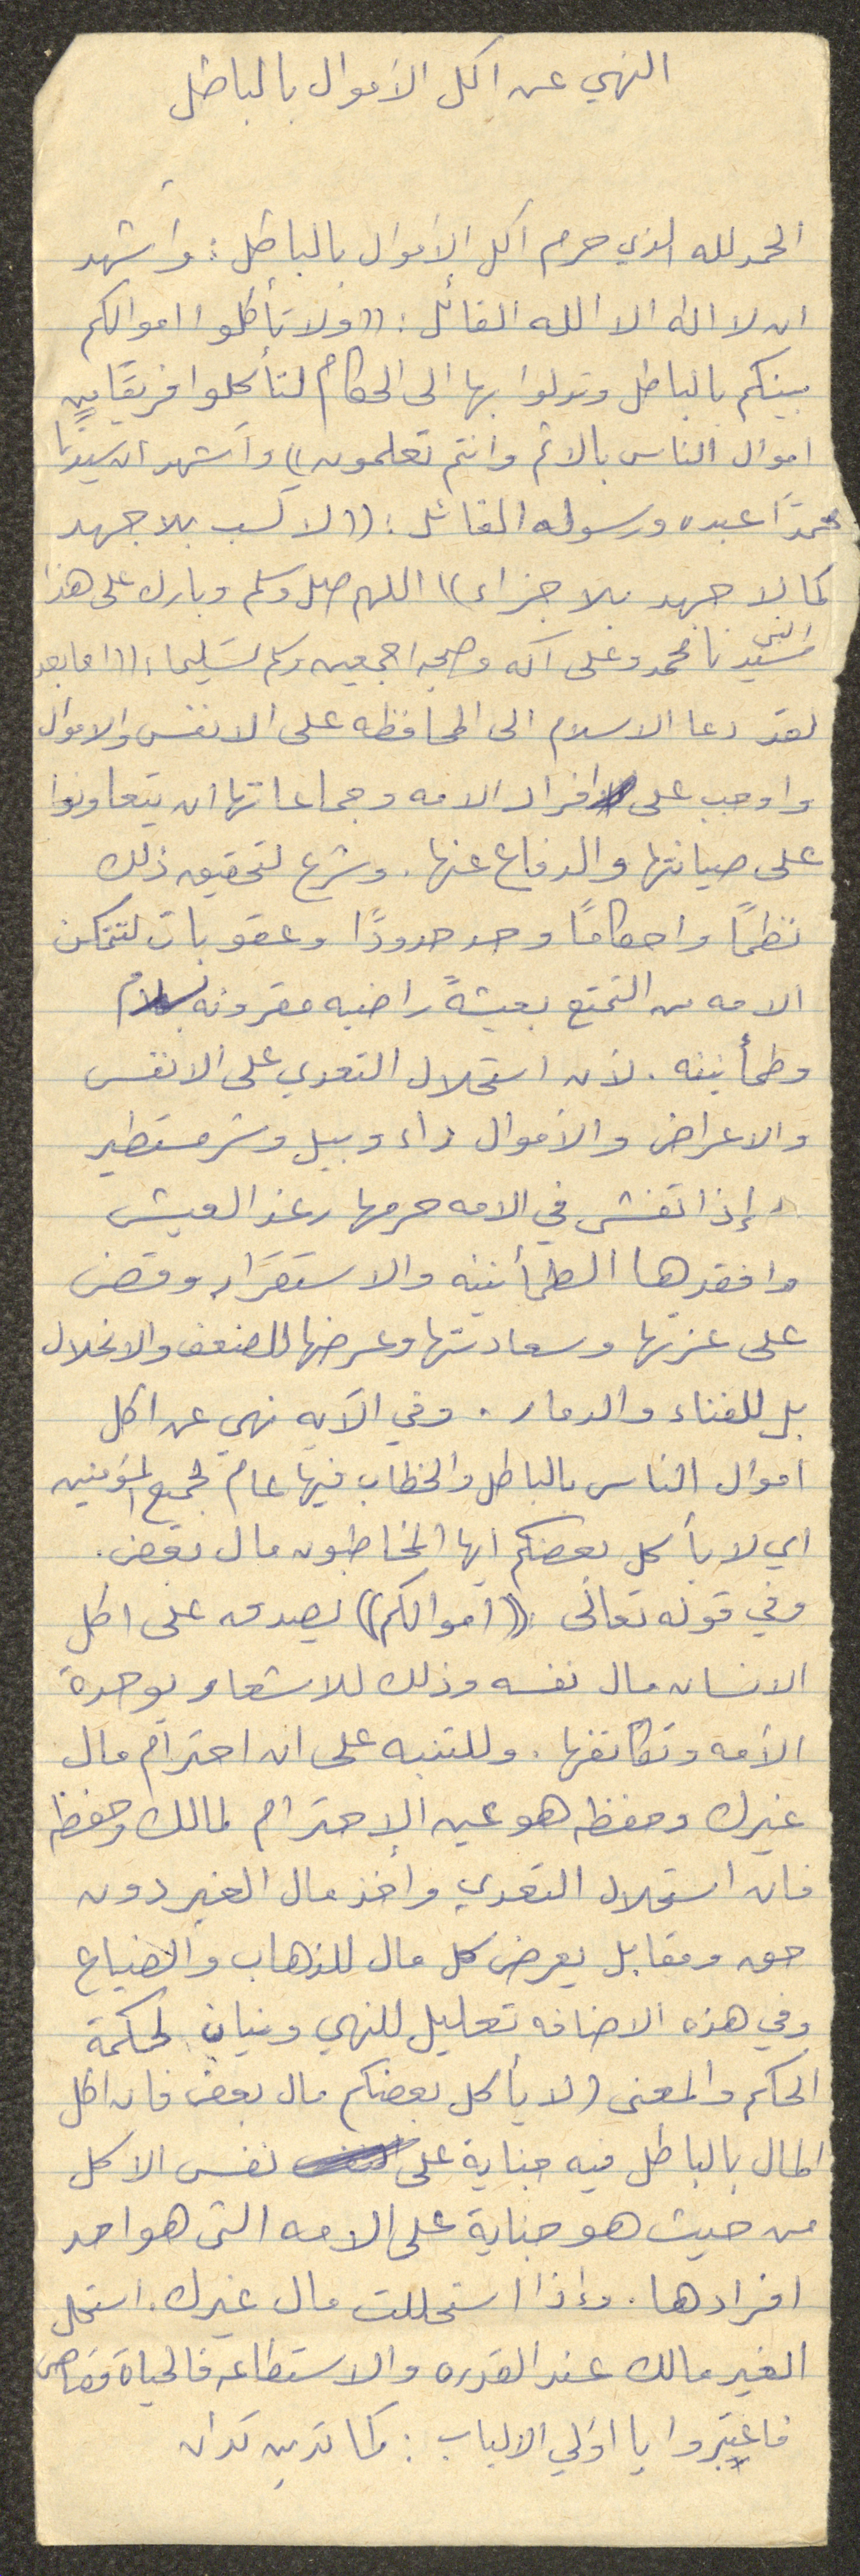 النهي عن اكل الأموال بالباطل
الحمد لله الذي حرم اكل الأموال بالباطل: وأشهد
ان لا اله الا الله القائل: ((ولا تأكلوا اموالكم
بينكم بالباطل وتدلوا بها الى الحكام لتأكلوا فريقًا من
اموال الناس بالاثم وانتم تعلمون)) وأشهد ان سيدنا
محمدًا عبده ورسوله القائل: ((لا كسب بلا جهد
كما لا جهد بلا جزاء)) اللهم صل وسلم وبارك على هذا
النبي سيدنا محمد وعلى آله وصحبه اجمعين وسلم تسليما: ((اما بعد
لقد دعا الاسلام الى المحافظه على الانفس والاموال
واوجب على افراد الامه وجماعاتها ان يتعاونوا
على صيانتها والدفاع عنها. وشرع لتحقيق ذلك
نظمًا واحكامًا وحد حدودًا وعقوبات لتتمكن
الامه من التمتع بعيشةً راضيه مقرونه بسلام
وطمأنينه. لأن استحلال التعدي على الانفس
والاعراض والأموال داء وبيل وشر مستطير
إذا تفشى في الامه حرمها رغد العيش
وافقدها الطمأنينه والاستقرار وقضى
على عزتها وسعادتها وعرضها للضعف والانحلال
بل للفناء والدمار. وفي الآيه نهي عن اكل
اموال الناس بالباطل والخطاب فيها عام لجميع المؤمنين
اي لا يأكل بعضكم ايها المخاطبون مال بعض.
وفي قوله تعالى ((أموالكم)) يصدق على اكل
الانسان مال نفسه وذلك للاشعار بوحدة
الأمه وتكاتفها. وللتنبه على ان احترام مال
غيرك وحفظه هو عين الإحترام لمالك وحفظه
فان استحلال التعدي وأخذ مال الغير دون
حق ومقابل يعرض كل مال للذهاب والضياع
وفي هذه الاضافه تعليل للنهي وبيان لحكمة
الحكم والمعنى (لا يأكل بعضكم مال بعض فان اكل
المال بالباطل فيه جناية على نفس الاكل
من حيث هو جناية على الامه التي هو احد
افرادها. وإذا استحللت مال غيرك. استحل
الغير مالك عند القدره والاستطاعه فالحياة قصاص
فاعتبروا يا اولي الالباب: كما تدين تدان